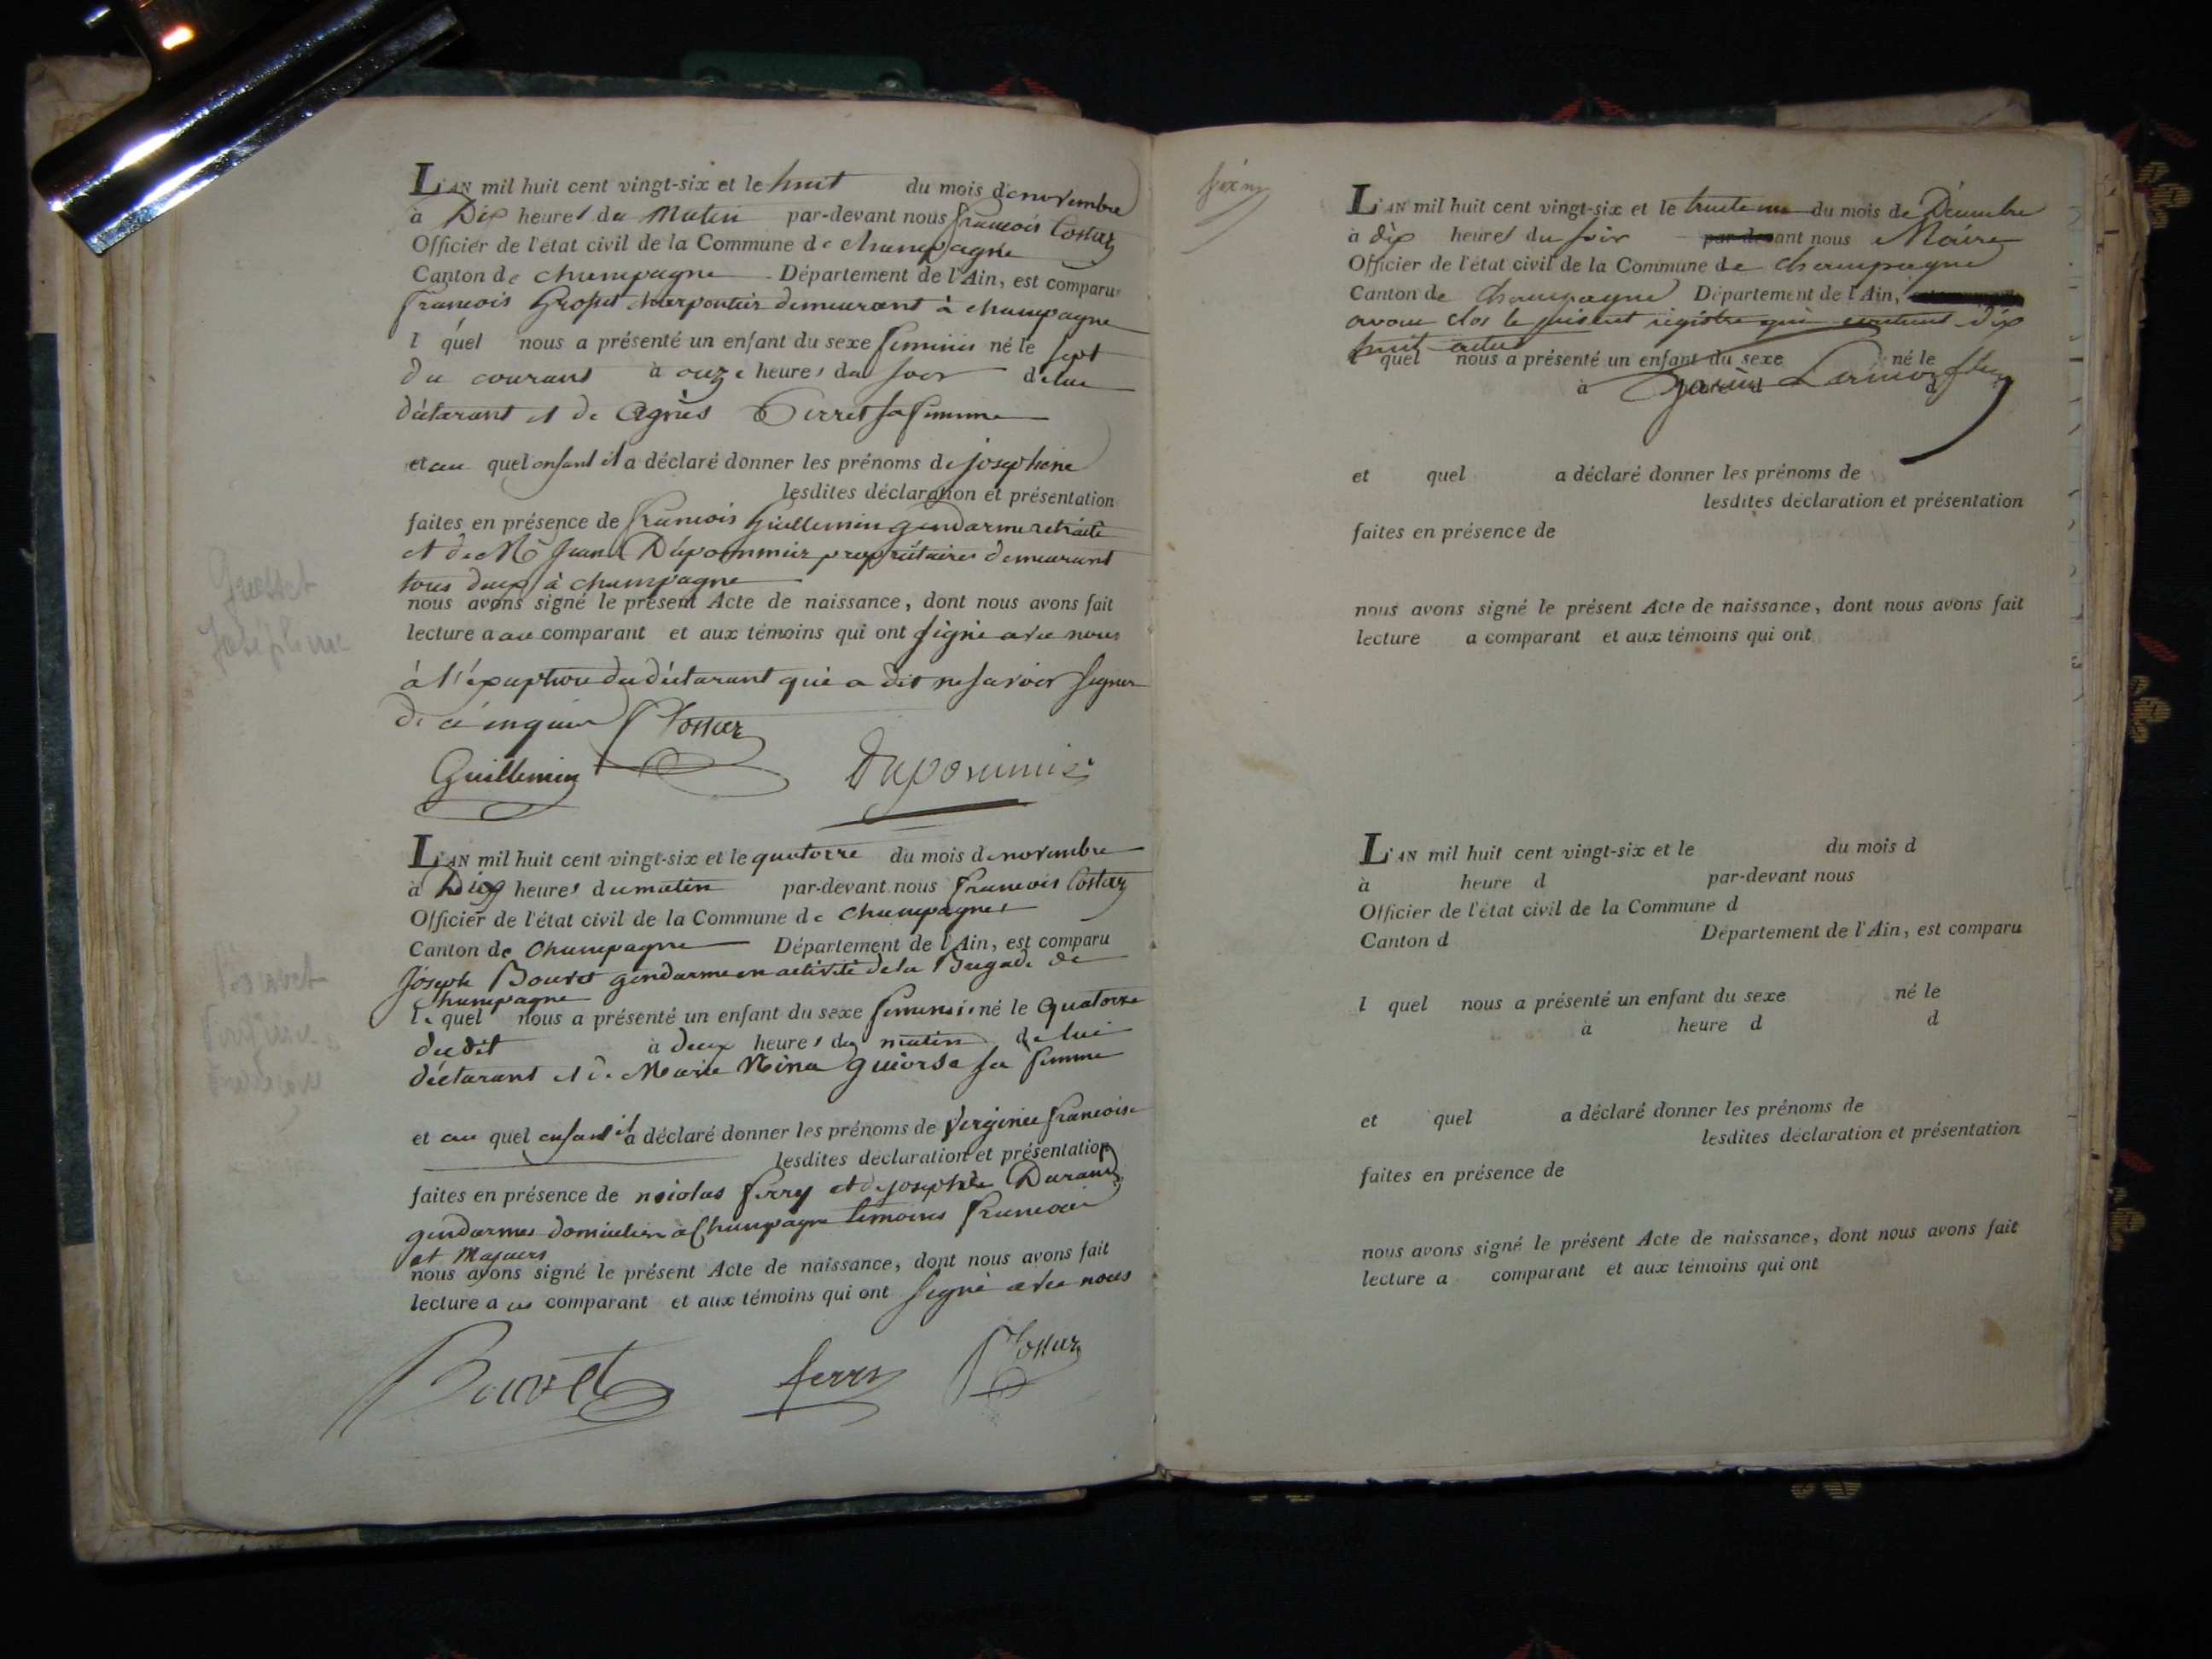 L'AN mil huit cent vingt-six et le huit du mois de novembre
à Dix heures du Matin par-devant nous francois Costaz
Officier de l'état civil de la Commune de champagne
Canton de champagne Département de l'Ain, est comparu
francois Grosset charpentier demeurant à champagne
l quel nous a présenté un enfant du sexe feminin né le sept
du courant à onze heures du soir de lui
déclarant et de Agnès Perret sa femme
et au quel enfant il a déclaré donner les prénoms de josephine
lesdites déclaration et présentation
faites en présence de francois Guillemin gendarme retraité
et de Jean Dupommier propriétaires demeurant
tous deux à champagne
nous avons signé le présent Acte de naissance, dont nous avons fait
lecture a au comparant et aux témoins qui ont signé avec nous
à l'exeption du déclarant qui a dit ne savoir signer
de ce enquis Costaz
Guillemin Dupommier
Grosset
Josephine
L'AN mil huit cent vingt-six et le quatorze du mois de novembre
à Dix heures du matin par-devant nous francois Costaz
Officier de l'état civil de la Commune de champagne
Canton de champagne Département de l'Ain, est comparu
joseph Bouvet gendarme en activité de la Brigade de
Champagne
le quel nous a présenté un enfant du sexe feminin né le quatorze
dudit à deux heures du matin de lui
déclarant et de Marie Nina guiorse sa femme
et au quel enfant il a déclaré donner les prénoms de Verginie francoise
lesdites déclaration et présentation
faites en présence de nicolas ferry et de joseph Durand
gendarmes domiciliés à Champagne témoins francais
et majeurs
nous avons signé le présent Acte de naissance, dont nous avons fait
lecture a au comparant et aux témoins qui ont signé avec nous
Bouvet ferry Costaz
Bouvet
L'AN mil huit cent vingt-six et le trente un du mois de Décembre
à dix heures du soir par-devant nous Maire
Officier de l'état civil de la Commune de champagne
Canton de Champagne Département de l'Ain,
avons clos le présent registre qui contient dix
huit actes
l quel nous a présenté un enfant du sexe né le
à heure d d
et quel a déclaré donner les prénoms de
lesdites déclaration et présentation
faites en présence de
nous avons signé le présent Acte de naissance, dont nous avons fait
lecture a comparant et aux témoins qui ont
L'AN mil huit cent vingt-six et le du mois d
à heure d par-devant nous
Officier de l'état civil de la Commune d
Canton d Département de l'Ain, est comparu
l quel nous a présenté un enfant du sexe né le
à heure d d
et quel a déclaré donner les prénoms de
lesdites déclaration et présentation
faites en présence de
nous avons signé le présent Acte de naissance, dont nous avons fait
lecture a comparant et aux témoins qui ont